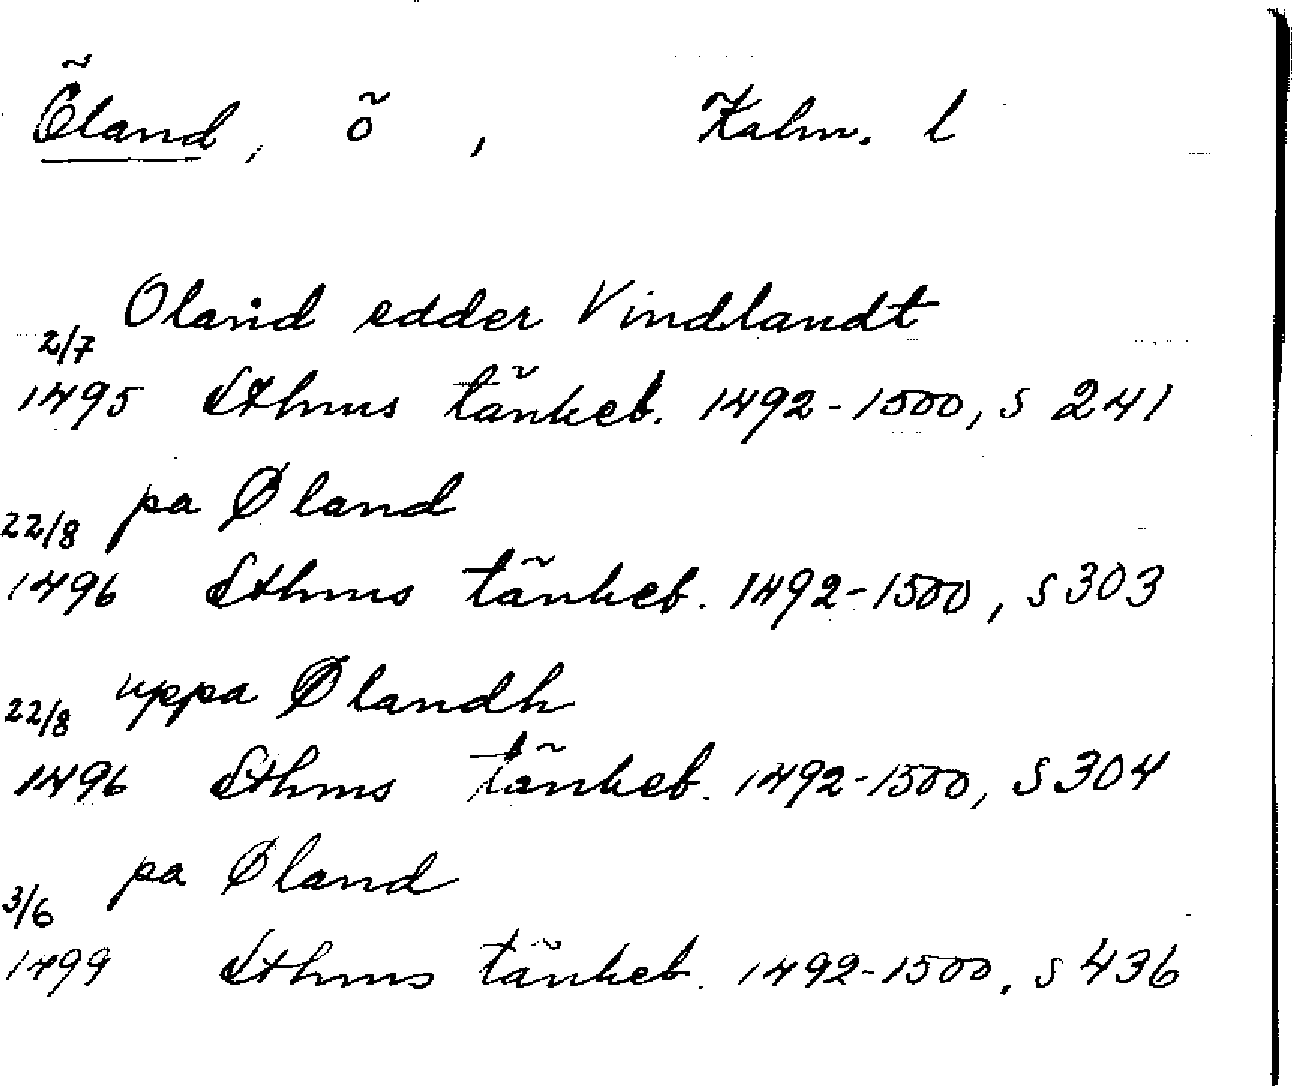 Öland, ö, Kalm. l
Oland edder Vindlandt
2/7
1495 Sthms tänkeb. 1492-1500, s 241
pa Øland
22/8
1496 Sthms tänkeb. 1492-1500, s 303
uppa Ølandh
22/8
1496 Sthms tänkeb. 1492-1500, s 304
pa Øland
3/6
1499 Sthms tänkeb. 1492-1500, s 436